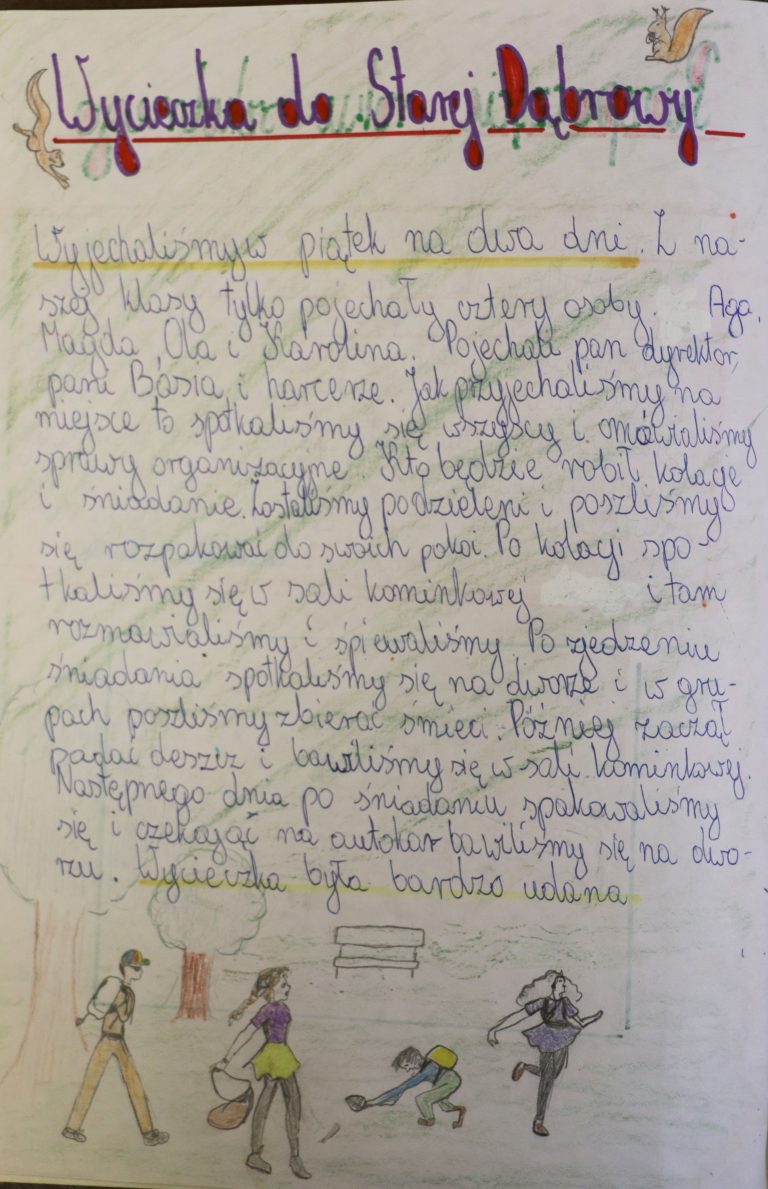 Wycieczka do Starej Dąbrowy
Wyjechaliśmy w piątek na dwa dni. Z na-
szej klasy tylko pojechały cztery osoby. Aga,
Magda, Ola i Karolina. Pojechali pan dyrektor,
pani Basia i harcerze. Jak przyjechaliśmy na
miejsce to spotkaliśmy się wszyscy i omawialiśmy
sprawy organizacyjne. Kto będzie robił kolacje
i śniadanie. Zostaliśmy podzieleni i poszliśmy
się rozpakować do swoich pokoi. Po kolacji spo-
tkaliśmy się w sali kominkowej i tam
rozmawialiśmy i śpiewaliśmy Po zjedzeniu
śniadania spotkaliśmy się na dworze i w gru-
pach poszliśmy zbierać śmieci. Później zaczął
padać deszcz i bawiliśmy się w sali kominkowej.
Następnego dnia po śniadaniu spakowaliśmy
się i czekając na autokar bawiliśmy się na dwo-
rzu. Wycieczka była bardzo udana